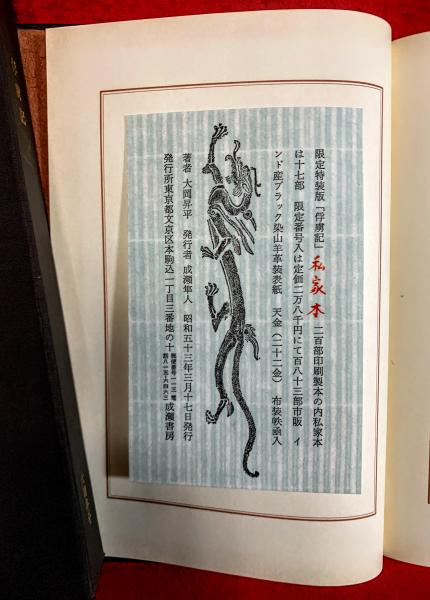 限定特装版「俘虜記」私家本 二百部印刷製本の内私家本
は十七部 限定番号入は定価二万八千円にて百八十三部市販 イ
ンド産ブラック染山羊革装表紙 天金(二十二金) 布装帙函入
著者 大岡昇平 発行者 成瀬隼人 昭和五十三年三月十七日発行
発行所東京都文京区本駒込一丁目三番地の十 郵便番号一一三 電話八一五・六四六三 成瀬書房